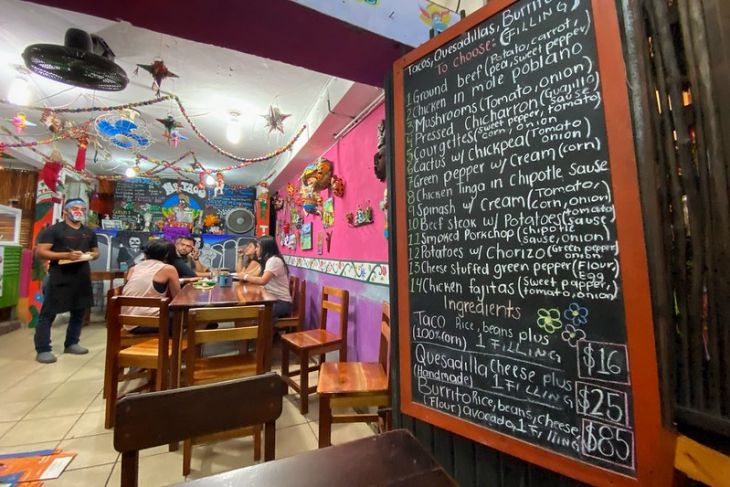 Tacos, Quesadillas, Burritos
To choose: (FILLING)
1 Ground beef (Potato, carrot,
pea, sweet pepper)
2 Chicken in mole poblano
3 Mushrooms (Tomato, onion)
4 Pressed Chicharron (Guajillo
sause
5 Courgettes (Sweet pepper, tomato)
corn, onion
6 Cactus w/ Chickpea (Tomato
onion)
7 Green pepper w/ Cream (corn)
8 Chicken tinga in Chipotle Sause
9 Spinash w/ Cream (Tomato,
onion)
10 Beef steak w/ Potatoes (tomato
sause,
11 Smoked Porkchop (Chipotle
sause, onion)
12 Potatoes w/ Chorizo (Green pepper
onion
13 Cheese stuffed green pepper (Flour,
Egg
14 Chicken fajitas (Sweet papper,
tomato, onion)
Ingredients
Taco Rice, beans plus
(100% corn) 1 FILLING $16
Quesadilla Cheese plus
(Handmade) 1 FILLING $25
Burrito Rice, beans, cheese
(Flour) avocado, 1 Filling $85